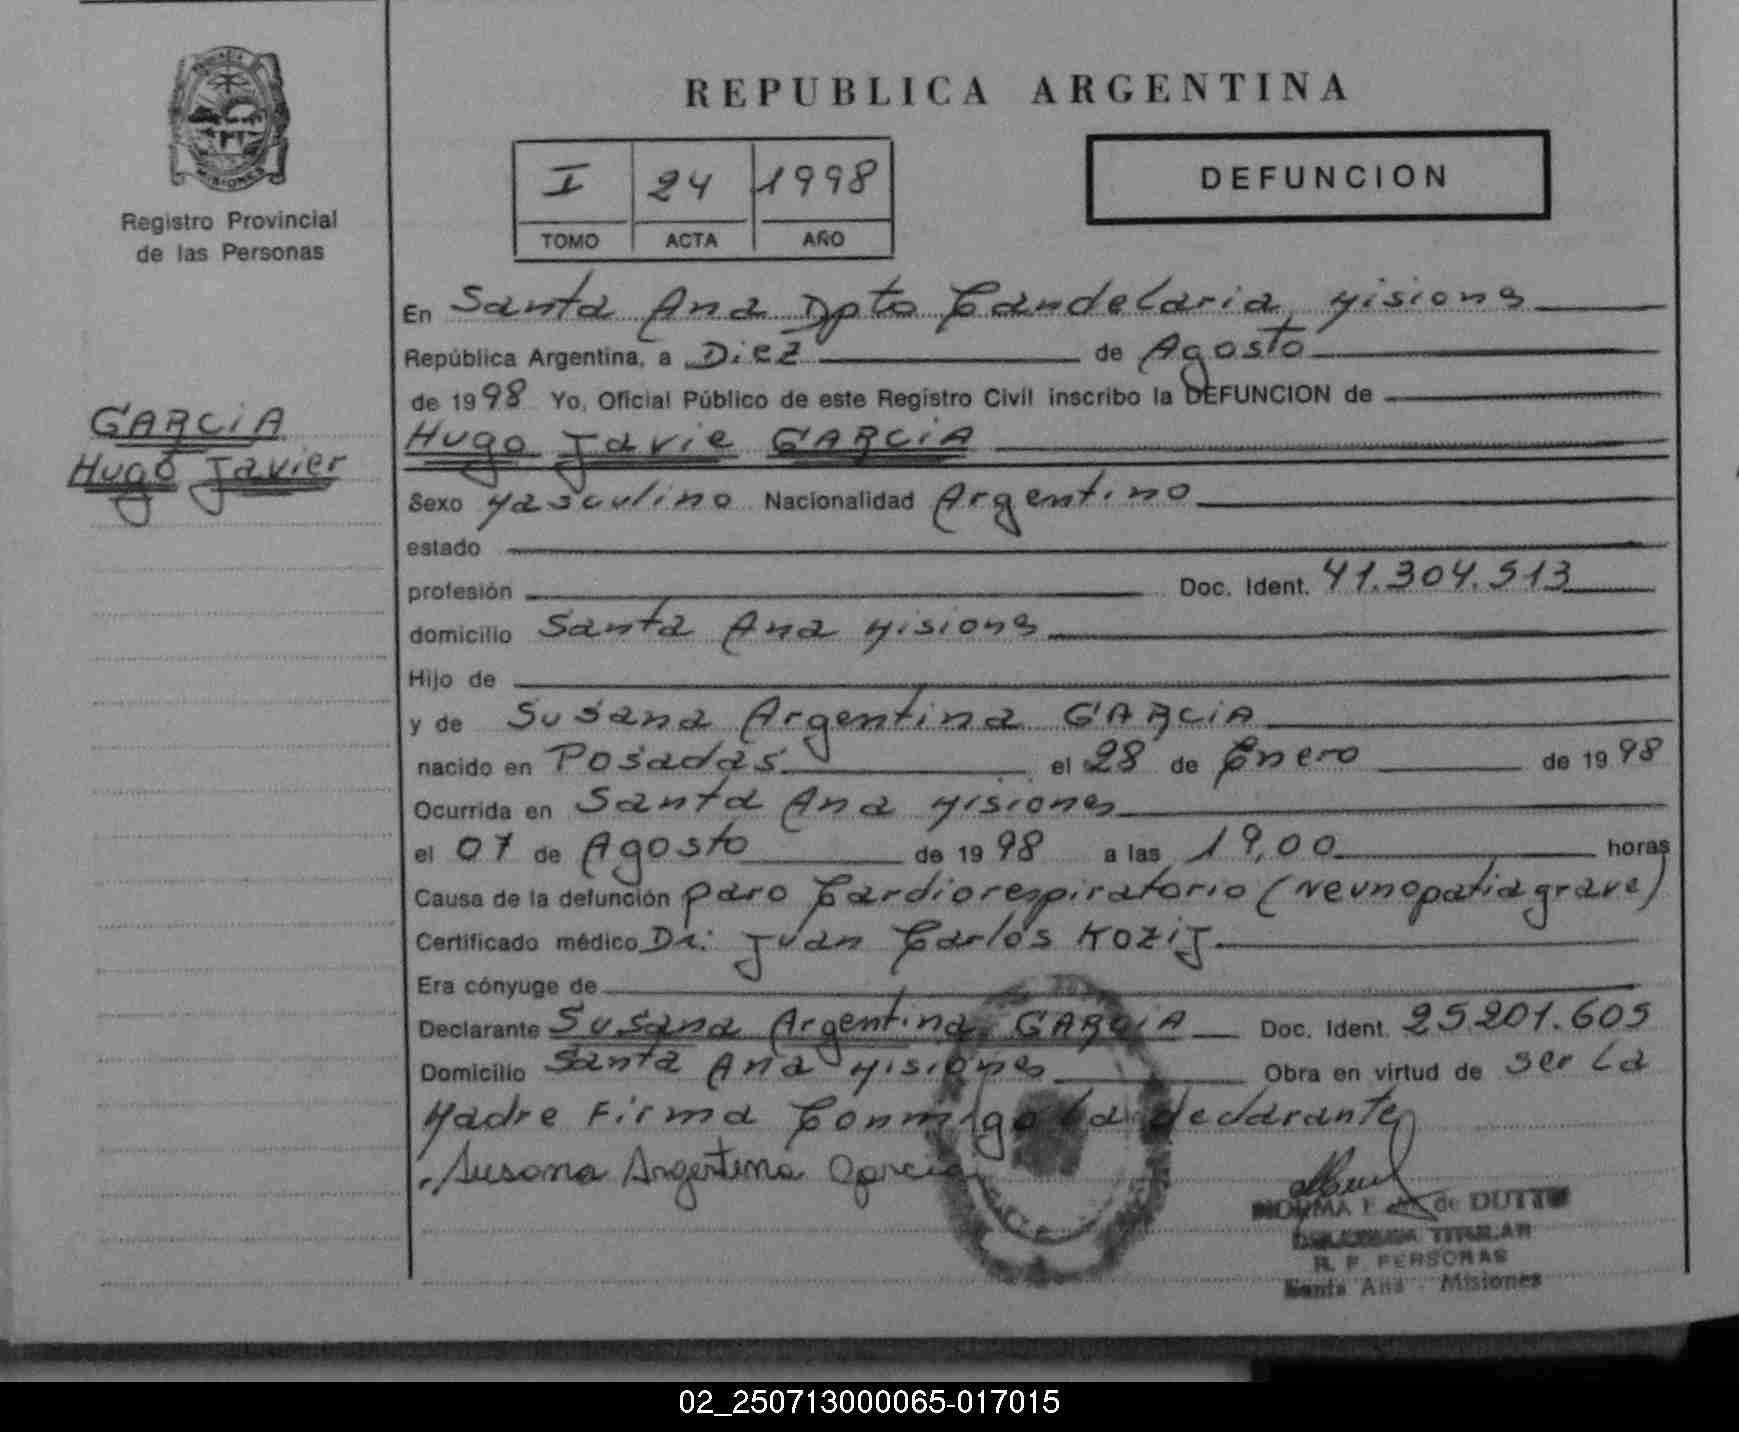 REPUBLICA ARGENTINA
MISIONES
Registro Provincial
de las Personas
I 24 1998
TOMO ACTA AÑO
DEFUNCION
GARCIA
Hugo Javier
En Santa Ana Dpto Candelaria, Misiones
República Argentina, a Diez de Agosto
de 1998 Yo, Oficial Público de este Registro Civil inscribo la DEFUNCION de
Hugo Javie GARCIA
Sexo Masculino Nacionalidad Argentino
estado
profesión Doc. Ident. 41.304.513
domicilio Santa Ana Misiones
Hijo de
y de Susana Argentina GARCIA
nacido en Posadas el 28 de Enero de 1998
Ocurrida en Santa Ana Misiones
el 07 de Agosto de 1998 a las 19,00 horas
Causa de la defunción paro Cardiorespiratorio (Neunopatia grave)
Certificado médico Dr. Juan Carlos Kozij
Era cónyuge de
Declarante Susana Argentina GARCIA Doc. Ident. 25.201.605
Domicilio Santa Ana Misiones Obra en virtud de ser la
Madre Firma Conmigo la declarante
Susana Argentina Garcia
NORMA de DUTTO
TITULAR
R. P. PERSONAS
Santa Ana - Misiones
02_250713000065-017015